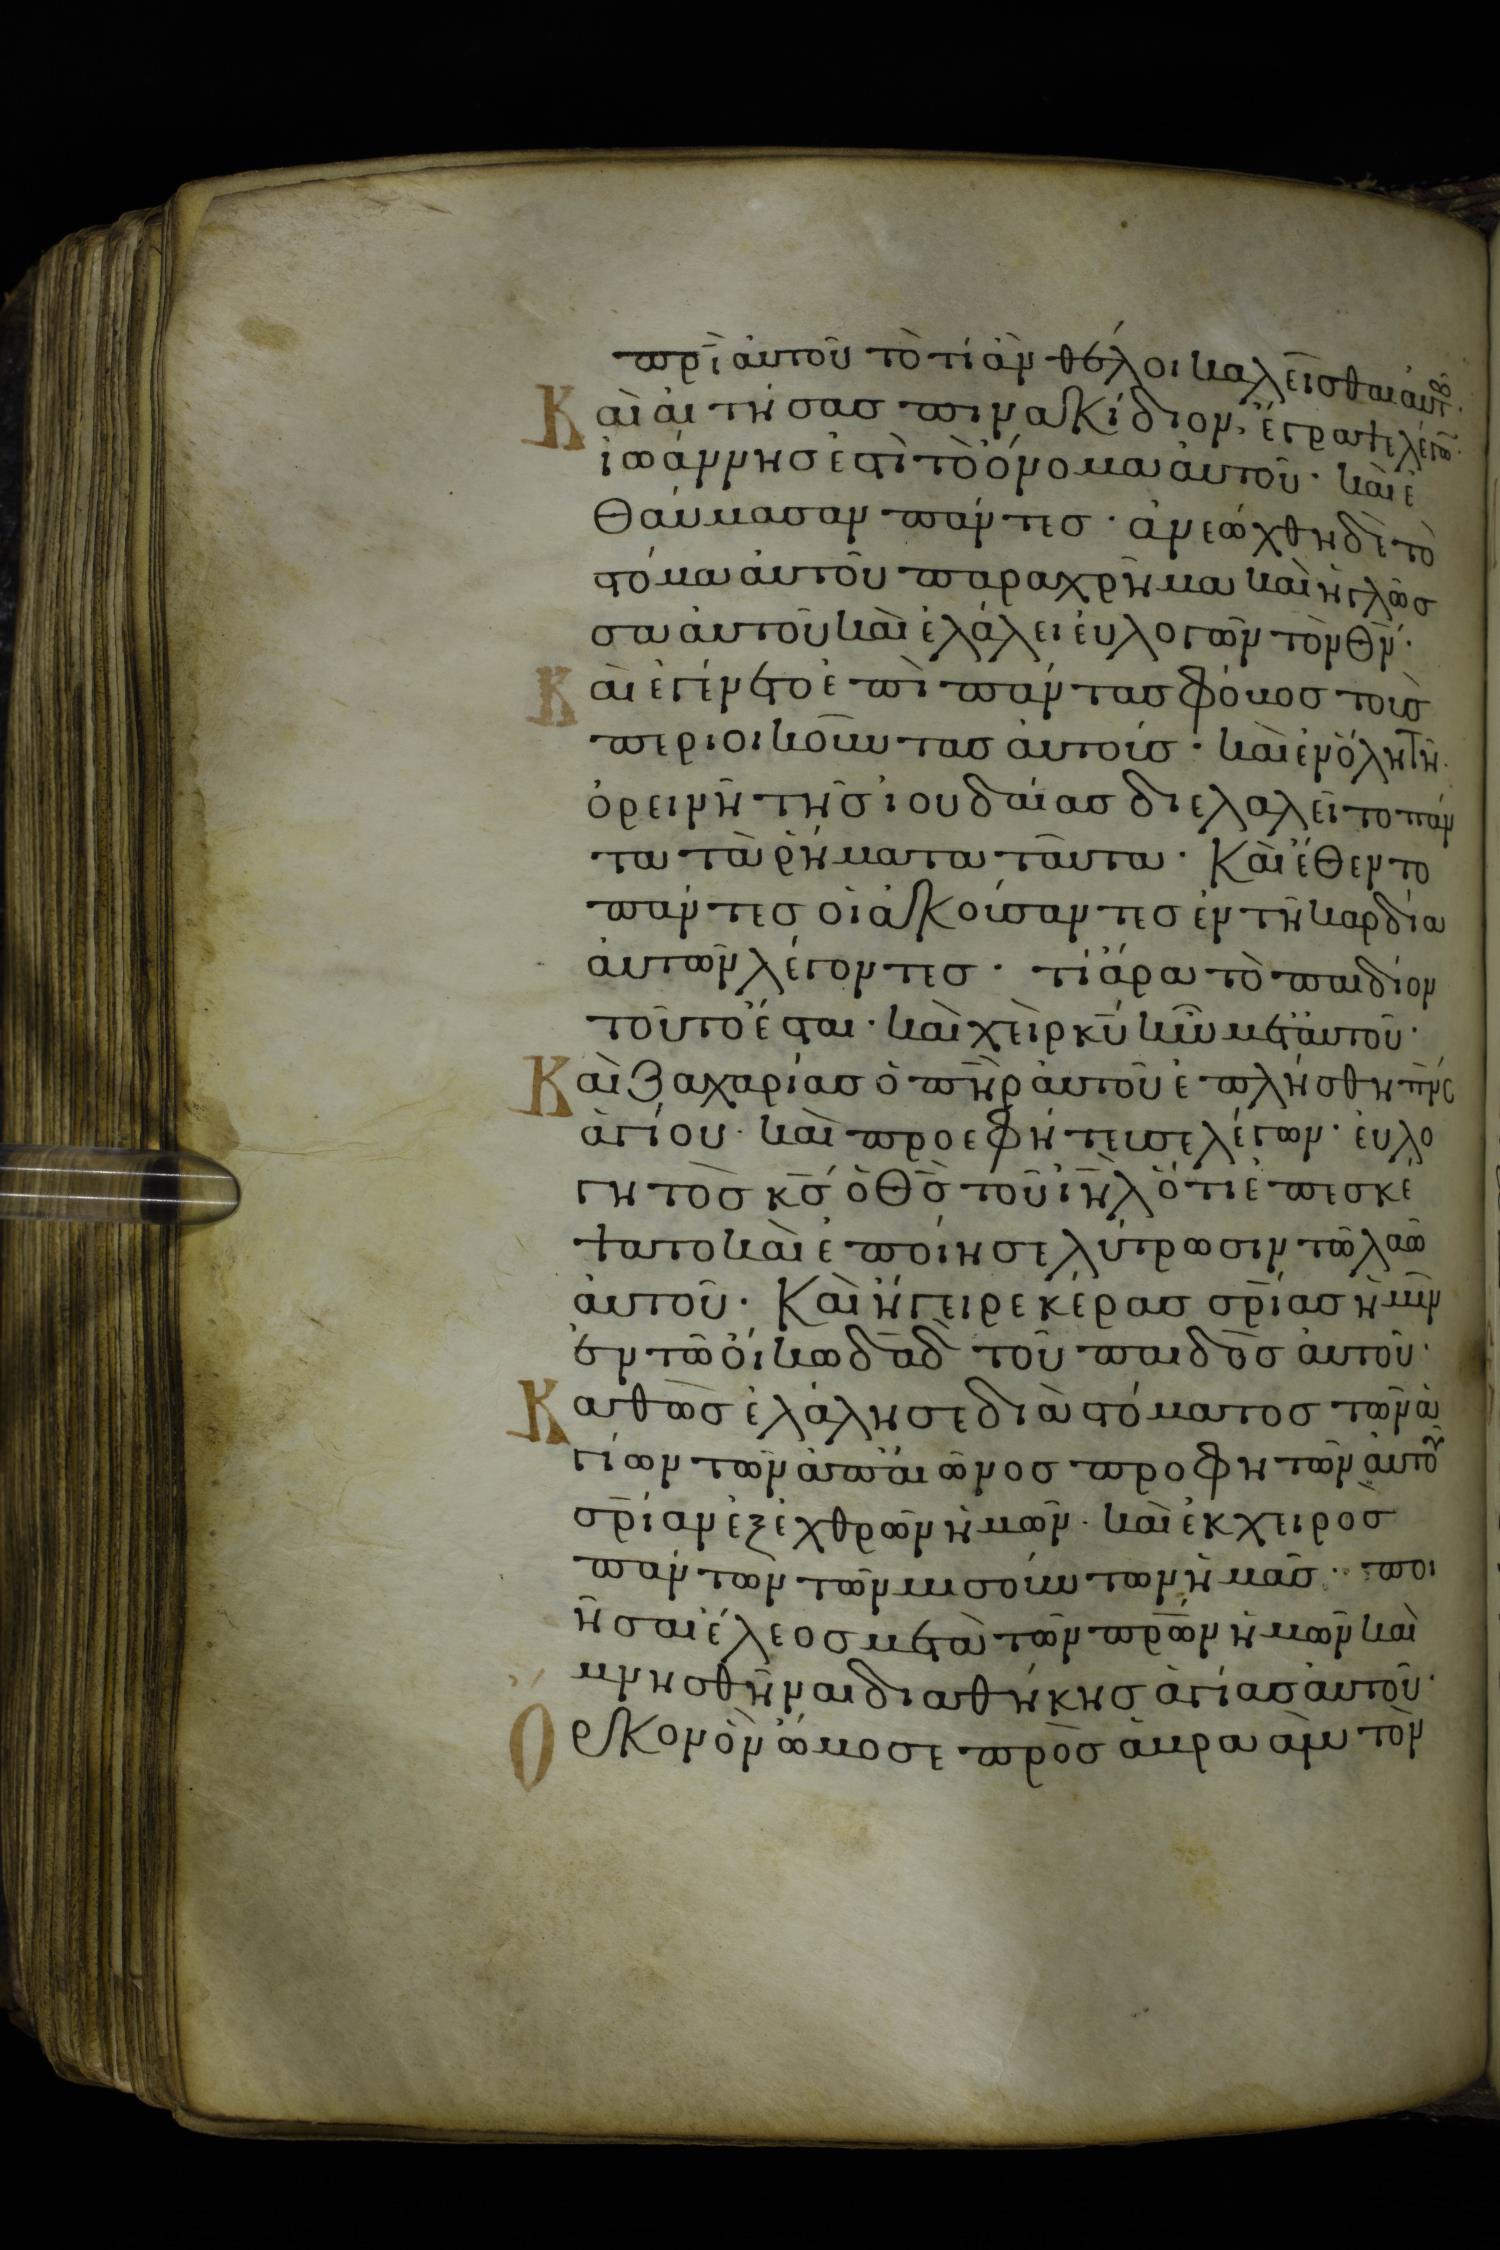 πρῑ αὐτοῦ τὸ τί ἂν θέλοι καλεῖσθαι αὐτό·
Καὶ αἰτήσας πινακίδιον, ἔγραψε λέγω·
ἰωάννης ἐστὶ τὸ ὄνομα αὐτοῦ· καὶ ἐ
θαύμασαν πάντες· ἀνεώχθη δὲ τὸ
στόμα αὐτοῦ παραχρῆμα καὶ ἡ γλῶσ
σα αὐτοῦ καὶ ἐλάλει εὐλογῶν τὸν θν̄·
Καὶ ἐγένετο ἐπὶ πάντας φόβος τοὺς
περιοικοῦντας αὐτοίς· καὶ ἐν ὅλη τῆ
ὀρεινῆ τῆς ἰουδαίας διελαλεῖτο πάν
τα τὰ ῥήματα ταῦτα· Καὶ ἔθεντο
πάντες οἱ ἀκούσαντες ἐν τῆ καρδία
αὐτῶν λέγοντες· τί ἄρα τὸ παιδίον
τοῦτο ἔσται· καὶ χεὶρ κῡ ἦν μετ' αὐτοῦ·
Καὶ Ζαχαρίας ὁ πηρ̄ αὐτοῦ ἐπλήσθη πνς̄
ἁγίου· καὶ προεφήτευσε λέγων· εὐλο
γητὸς κς̄ ὁ θς̄ τοῦ ιηλ̄ ὅτι ἐπεσκέ
ψατο καὶ ἐποίησε λύτρωσιν τῶ λαῶ
αὐτοῦ· Καὶ ἤγειρε κέρας σρ̄ίας ἡμῖν
ἐν τῶ οἴκω δᾱδ τοῦ παιδὸς αὐτοῦ·
Καθὼς ἐλάλησε διὰ στόματος τῶν ἁ
γίων τῶν ἀπ' αἰῶνος προφητῶν αὐτοῦ
σρ̄ίαν ἐξ ἐχθρῶν ἡμῶν· καὶ ἐκ χειρὸς
πάντων τῶν μισούντων ἡμᾶς· ποι
ῆσαι ἔλεος μετὰ τῶν πρ̄ων ἡμῶν καὶ
μνησθῆναι διαθήκης ἁγίας αὐτοῦ·
Ὅρκον ὃν ὤμοσε πρὸς ἀβραὰμ τὸν